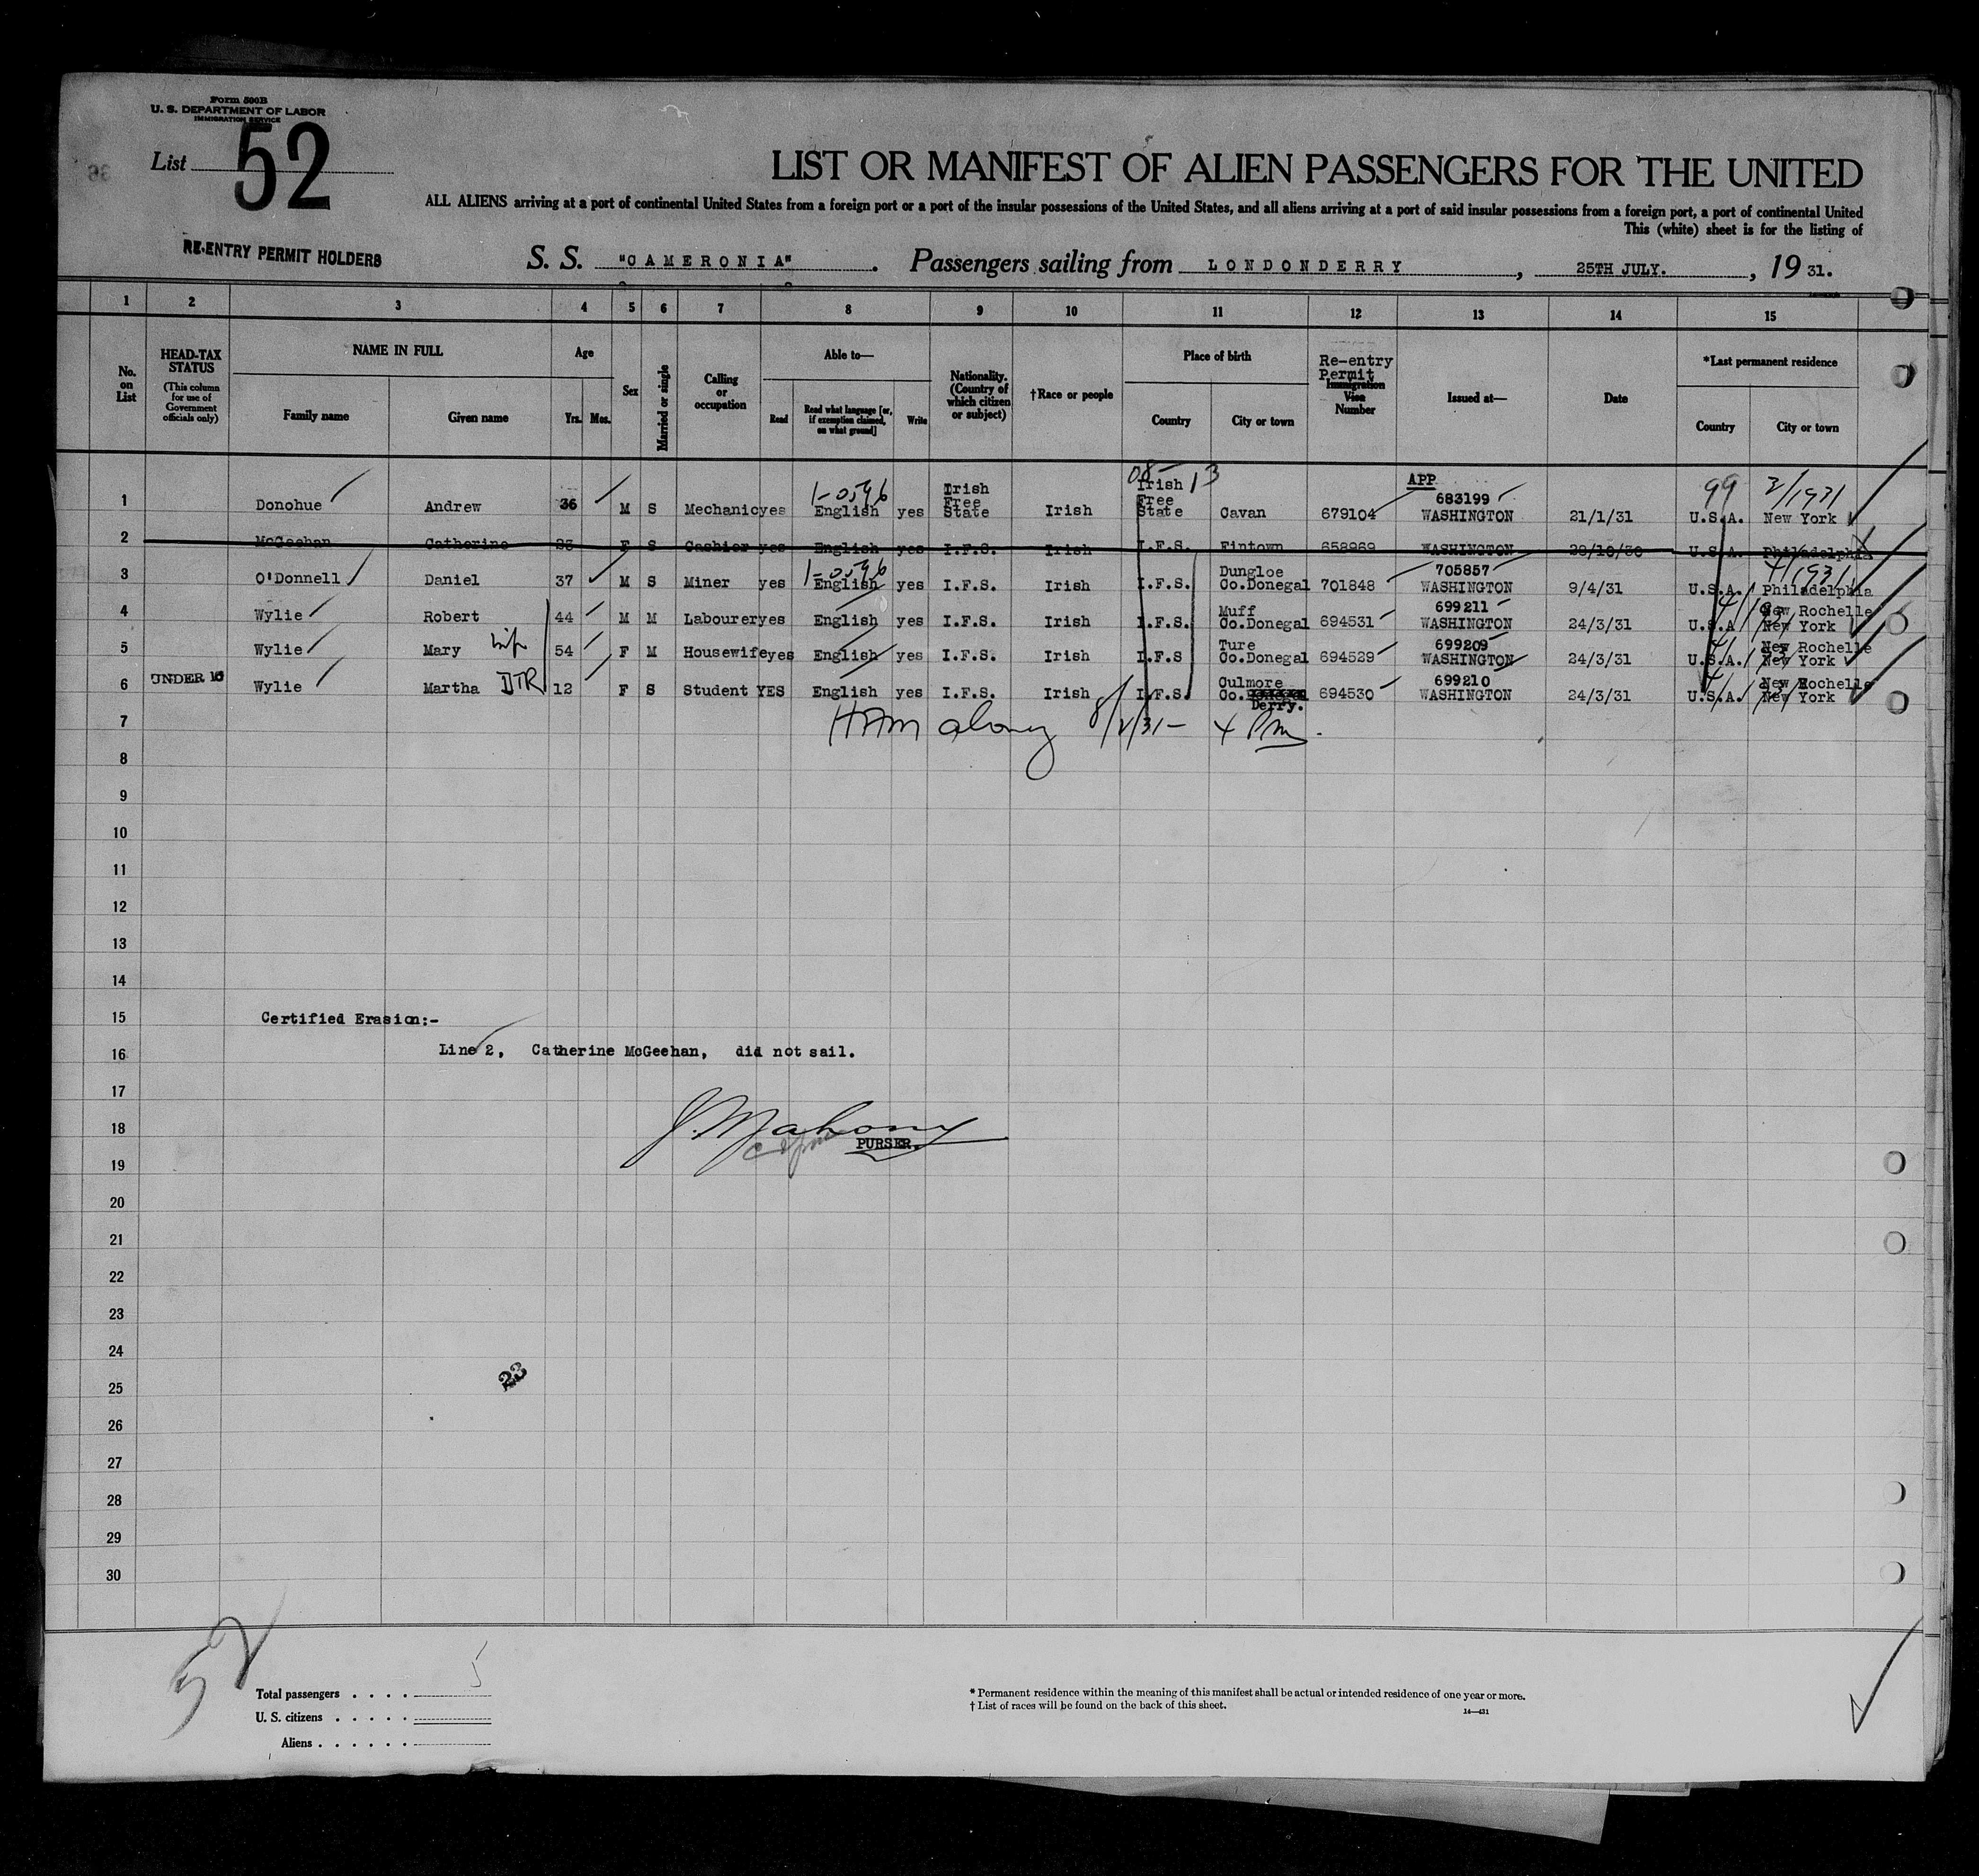 Form 500B
U. S. DEPARTMENT OF LABOR
IMMIGRATION SERVICE
List 52
LIST OR MANIFEST OF ALIEN PASSENGERS FOR THE UNITED
ALL ALIENS arriving at a port of continental United States from a foreign port or a port of the insular possessions of the United States, and all aliens arriving at a port of said insular possessions from a foreign port, a port of continental United
This (white) sheet is for the listing of
RE-ENTRY PERMIT HOLDERS
S. S. "CAMERONIA" . Passengers sailing from LONDONDERRY , 25TH JULY. , 19 31.
1 2 3 4 5 6 7 8 9 10 11 12 13 14 15
No. on List
HEAD-TAX STATUS (This column for use of Government officials only)
NAME IN FULL
Family name Given name
Age
Yrs. Mos.
Sex
Married or single
Calling or occupation
Able to—
Read Read what language [or, if exemption claimed, on what ground] Write
Nationality. (Country of which citizen or subject)
†Race or people
Place of birth
Country City or town
Re-entry Permit
Immigration Visa Number
Issued at—
Date
*Last permanent residence
Country City or town
1 Donohue Andrew 36 M S Mechanic yes 1-0596 English yes Irish Free State Irish 08- 13 Irish Free State Cavan 679104 APP 683199 WASHINGTON 21/1/31 99 U.S.A. 2/1931 New York
2 McGeehan Catherine F S Cashier yes English yes I.F.S. Irish I.F.S. Fintown 658969 WASHINGTON 29/10/30 U.S.A. Philadelphia
3 O'Donnell Daniel 37 M S Miner yes 1-0596 English yes I.F.S. Irish I.F.S. Dungloe Co.Donegal 701848 705857 WASHINGTON 9/4/31 U.S.A. 4/1931 Philadelphia
4 Wylie Robert 44 M M Labourer yes English yes I.F.S. Irish I.F.S. Muff Co.Donegal 694531 699211 WASHINGTON 24/3/31 U.S.A New Rochelle New York
5 Wylie Mary wife 54 F M Housewife yes English yes I.F.S. Irish I.F.S Ture Co.Donegal 694529 699209 WASHINGTON 24/3/31 U.S.A. New Rochelle New York
6 UNDER 16 Wylie Martha DTR 12 F S Student YES English yes I.F.S. Irish I.F.S. Culmore Co. Derry. 694530 699210 WASHINGTON 24/3/31 U.S.A. New Rochelle New York
7
8
9
10
11
12
13
14
15 Certified Erasion:-
16 Line 2, Catherine McGeehan, did not sail.
17
18 J. Mahony
PURSER.
19
20
21
22
23
24
23
25
26
27
28
29
30
52
Total passengers . . . . 5
U. S. citizens . . . . .
Aliens . . . . . .
* Permanent residence within the meaning of this manifest shall be actual or intended residence of one year or more.
† List of races will be found on the back of this sheet.
14—431